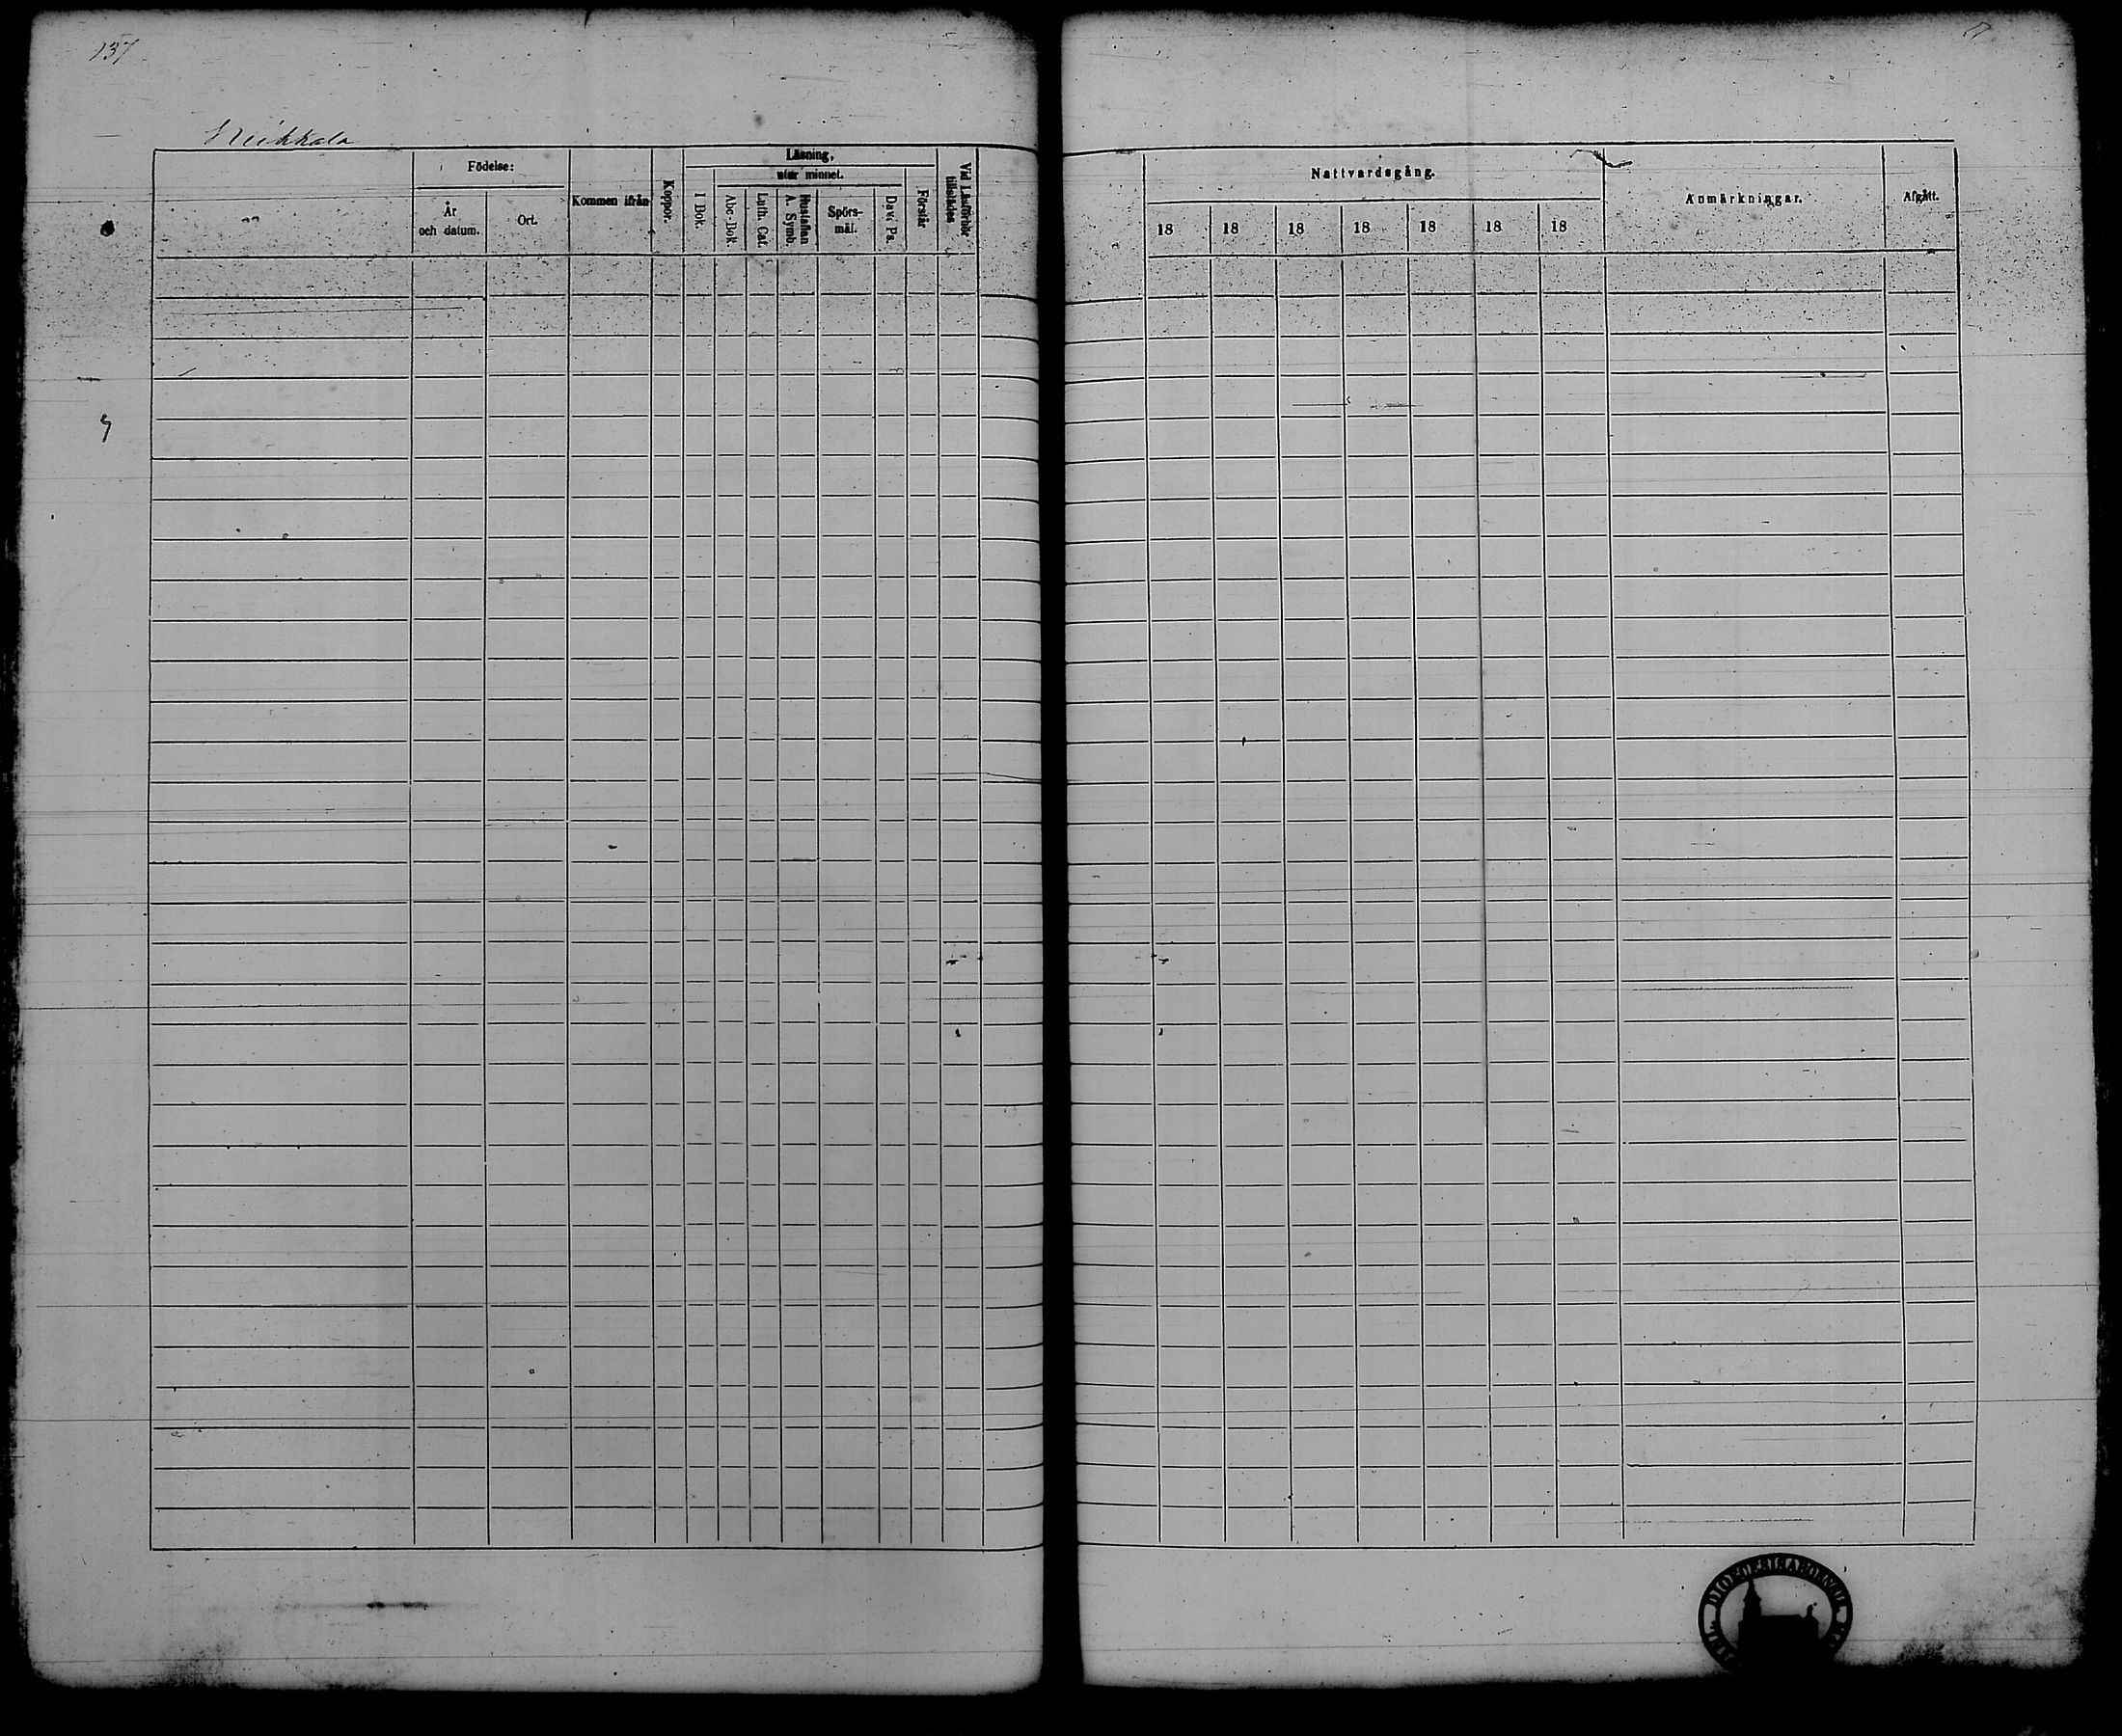 137
Födelse:
År
och datum.
Ort.
Kommen ifrån
Koppor.
Läsning,
utur minnet.
I Bok.
Abc-Bok.
Luth. Cat.
Hustaflan
A. Symb.
Spörs-
mål.
Dav. Ps.
Förstår
Vid Läsförhör
tillstädes
Nattvardsgång.
18 18 18 18 18 18 18
Anmärkningar.
Afgått.